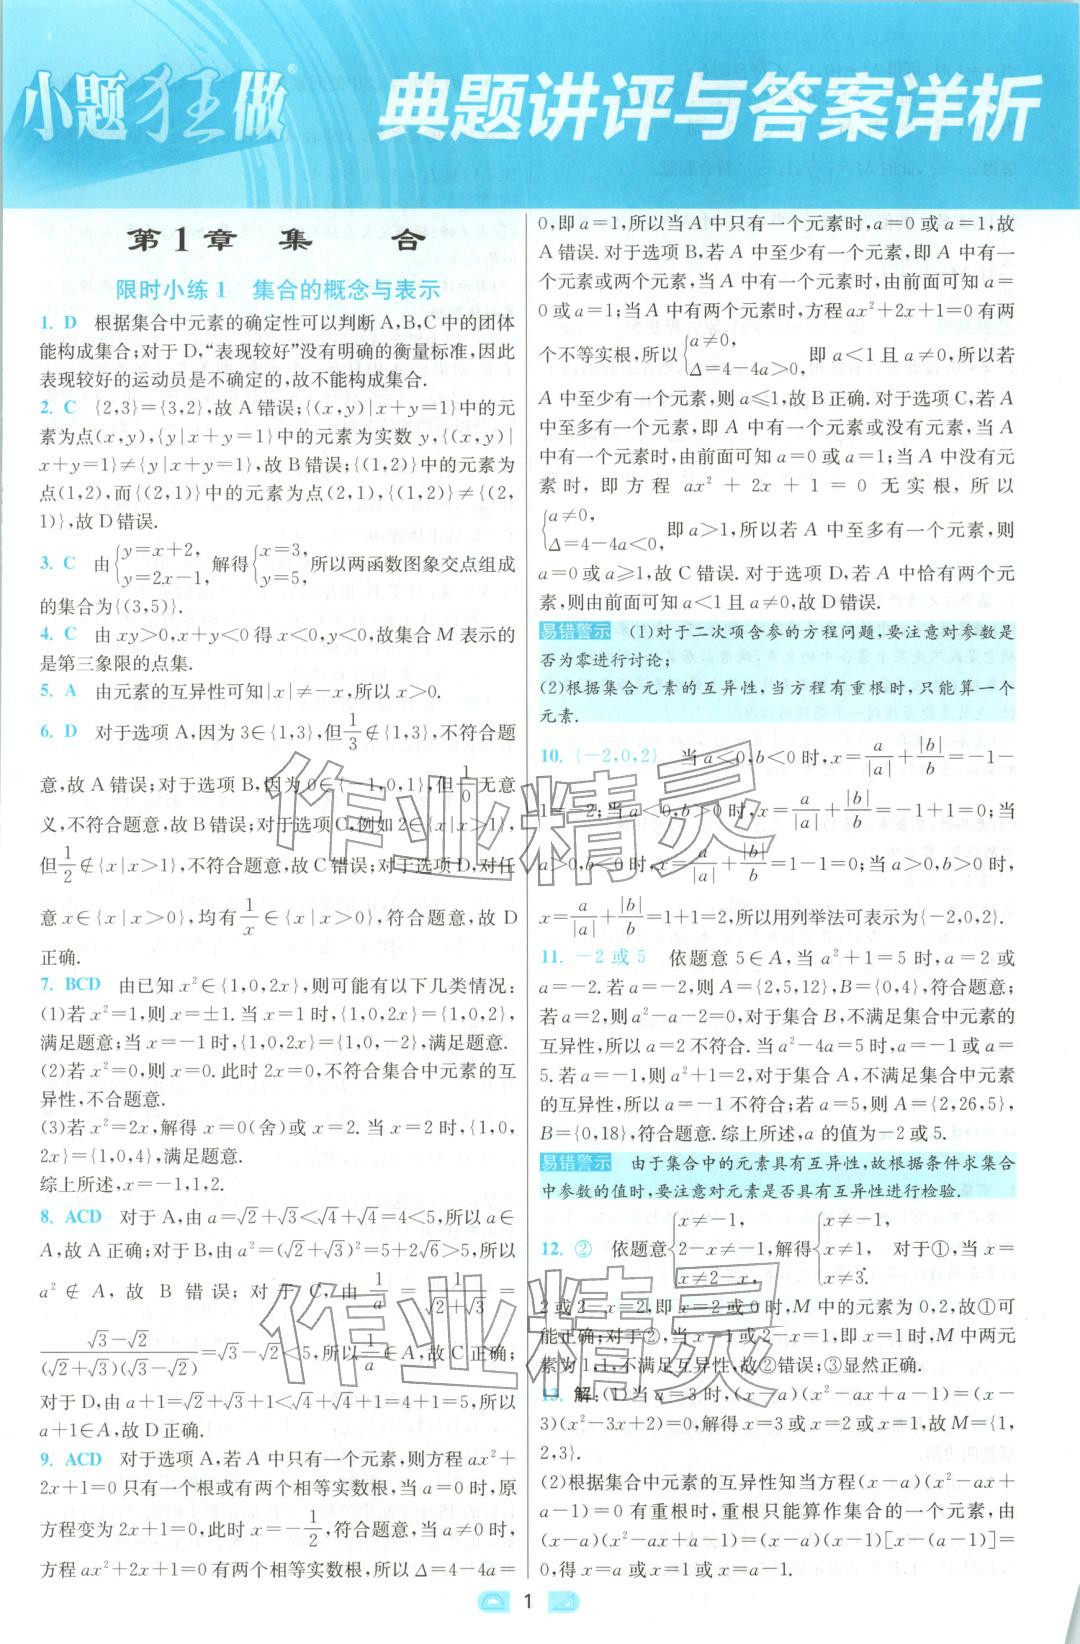 小题狂做®
典题讲评与答案详析
第1章 集 合
限时小练1 集合的概念与表示
1. D 根据集合中元素的确定性可以判断A,B,C中的团体
能构成集合;对于D,“表现较好”没有明确的衡量标准,因此
表现较好的运动员是不确定的,故不能构成集合.
2. C {2,3}={3,2},故A错误;{(x,y)|x+y=1}中的元
素为点(x,y),{y|x+y=1}中的元素为实数y,{(x,y)|
x+y=1}≠{y|x+y=1},故B错误;{(1,2)}中的元素为
点(1,2),而{(2,1)}中的元素为点(2,1),{(1,2)}≠{(2,
1)},故D错误.
3. C 由{y=x+2, y=2x-1, 解得{x=3, y=5, 所以两函数图象交点组成
的集合为{(3,5)}.
4. C 由xy>0,x+y<0得x<0,y<0,故集合M表示的
是第三象限的点集.
5. A 由元素的互异性可知|x|≠-x,所以x>0.
6. D 对于选项A,因为3∈{1,3},但1/3∉{1,3},不符合题
意,故A错误;对于选项B,因为0∈{-1,0,1},但1/0无意
义,不符合题意,故B错误;对于选项C,例如2∈{x|x>1},
但1/2∉{x|x>1},不符合题意,故C错误;对于选项D,对任
意x∈{x|x>0},均有1/x∈{x|x>0},符合题意,故D
正确.
7. BCD 由已知x²∈{1,0,2x},则可能有以下几类情况:
(1)若x²=1,则x=±1.当x=1时,{1,0,2x}={1,0,2},
满足题意;当x=-1时,{1,0,2x}={1,0,-2},满足题意.
(2)若x²=0,则x=0.此时2x=0,不符合集合中元素的互
异性,不合题意.
(3)若x²=2x,解得x=0(舍)或x=2.当x=2时,{1,0,
2x}={1,0,4},满足题意.
综上所述,x=-1,1,2.
8. ACD 对于A,由a=√2+√3<√4+√4=4<5,所以a∈
A,故A正确;对于B,由a²=(√2+√3)²=5+2√6>5,所以
a²∉A,故B错误;对于C,由1/a=1/(√2+√3)=
(√3-√2)/((√2+√3)(√3-√2))=√3-√2<5,所以1/a∈A,故C正确;
对于D,由a+1=√2+√3+1<√4+√4+1=4+1=5,所以
a+1∈A,故D正确.
9. ACD 对于选项A,若A中只有一个元素,则方程ax²+
2x+1=0只有一个根或有两个相等实数根,当a=0时,原
方程变为2x+1=0,此时x=-1/2,符合题意,当a≠0时,
方程ax²+2x+1=0有两个相等实数根,所以Δ=4-4a=
0,即a=1,所以当A中只有一个元素时,a=0或a=1,故
A错误.对于选项B,若A中至少有一个元素,即A中有一
个元素或两个元素,当A中有一个元素时,由前面可知a=
0或a=1;当A中有两个元素时,方程ax²+2x+1=0有两
个不等实根,所以{a≠0, Δ=4-4a>0, 即a<1且a≠0,所以若
A中至少有一个元素,则a≤1,故B正确.对于选项C,若A
中至多有一个元素,即A中有一个元素或没有元素,当A
中有一个元素时,由前面可知a=0或a=1;当A中没有元
素时,即方程ax²+2x+1=0无实根,所以
{a≠0, Δ=4-4a<0, 即a>1,所以若A中至多有一个元素,则
a=0或a≥1,故C错误.对于选项D,若A中恰有两个元
素,则由前面可知a<1且a≠0,故D错误.
易错警示 (1)对于二次项含参的方程问题,要注意对参数是
否为零进行讨论;
(2)根据集合元素的互异性,当方程有重根时,只能算一个
元素.
10. {-2,0,2} 当a<0,b<0时,x=a/|a|+|b|/b=-1-
1=-2;当a<0,b>0时,x=a/|a|+|b|/b=-1+1=0;当
a>0,b<0时,x=a/|a|+|b|/b=1-1=0;当a>0,b>0时,
x=a/|a|+|b|/b=1+1=2,所以用列举法可表示为{-2,0,2}.
11. -2或5 依题意5∈A,当a²+1=5时,a=2或
a=-2.若a=-2,则A={2,5,12},B={0,4},符合题意;
若a=2,则a²-a-2=0,对于集合B,不满足集合中元素的
互异性,所以a=2不符合.当a²-4a=5时,a=-1或a=
5.若a=-1,则a²+1=2,对于集合A,不满足集合中元素
的互异性,所以a=-1不符合;若a=5,则A={2,26,5},
B={0,18},符合题意.综上所述,a的值为-2或5.
易错警示 由于集合中的元素具有互异性,故根据条件求集合
中参数的值时,要注意对元素是否具有互异性进行检验.
12. ② 依题意{x≠-1, 2-x≠-1, x≠2-x, 解得{x≠-1, x≠1, x≠3. 对于①,当x=
2或2-x=2,即x=2或0时,M中的元素为0,2,故①可
能正确;对于②,当x=1或2-x=1,即x=1时,M中两元
素为1,1,不满足互异性,故②错误;③显然正确.
13. 解:(1)当a=3时,(x-a)(x²-ax+a-1)=(x-
3)(x²-3x+2)=0,解得x=3或x=2或x=1,故M={1,
2,3}.
(2)根据集合中元素的互异性知当方程(x-a)(x²-ax+
a-1)=0有重根时,重根只能算作集合的一个元素,由
(x-a)(x²-ax+a-1)=(x-a)(x-1)[x-(a-1)]=
0,得x=a或x=1或x=a-1.
作业精灵
作业精灵
1